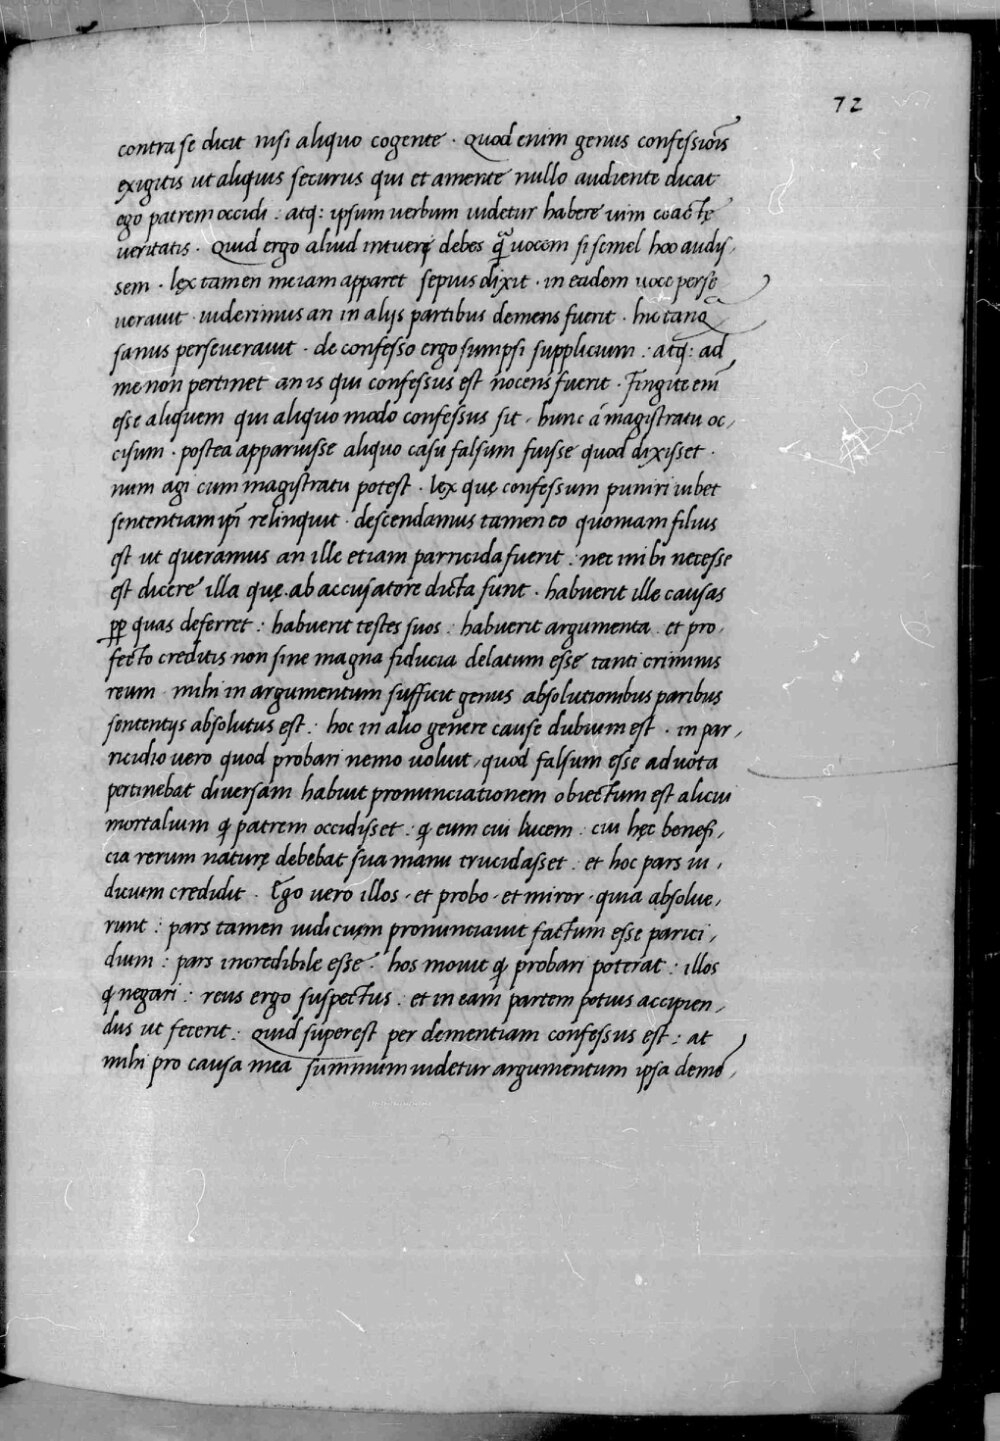 72
contra se dicit nisi aliquo cogente · Quod enim genus confessiōis
exigitis ut aliquis securus qui et amente nullo audiente dicat
ego patrem occidi : atq: ipsum uerbum uidetur habere uim coactę
ueritatis · Quid ergo aliud intuerę debes q̄ uocem si semel hoc audis,
sem · lex tamen meiam apparet sepius dixit · in eadem uoce perse
uerauit · uiderimus an in alijs partibus demens fuerit · hic tanq̄
sanus perseuerauit · de confesso ergo sumpsi supplicium : atq: ad
me non pertinet an is qui confessus est nocens fuerit · Fingite em̄
esse aliquem qui aliquo modo confessus sit, hunc á magistratu oc,
cisum · postea apparuisse aliquo casu falsum fuisse quod dixisset ·
num agi cum magistratu potest · lex quę confessum puniri iubet
sententiam ip̄i relinquit · descendamus tamen eo quoniam filius
est ut queramus an ille etiam parricida fuerit : nec mihi necesse
est dicere illa quę ab accusatore dicta sunt · habuerit ille causas
pp quas deferret : habuerit testes suos : habuerit argumenta · et pro,
fecto creditis non sine magna fiducia delatum esse tanti criminis
reum · mihi in argumentum sufficit genus absolutionibus paribus
sententijs absolutus est : hoc in alio genere cause dubium est · in par,
ricidio uero quod probari nemo uoluit, quod falsum esse ad uota
pertinebat diuersam habuit pronunciationem obiectum est alicui
mortalium q̨ patrem occidisset : q̨ eum cui lucem : cui hęc benefi,
cia rerum naturę debebat sua manu trucidasset : et hoc pars iu,
dicum credidit · Ego uero illos · et probo · et miror · quia absolue,
runt : pars tamen iudicum pronunciauit factum esse parici,
dium : pars incredibile esse · hos mouit q̨ probari poterat : illos
q̨ negari : reus ergo suspectus : et in eam partem potius accipien,
dus ut fecerit · Quid superest per dementiam confessus est : at
mihi pro causa mea summum uidetur argumentum ipsa demē,